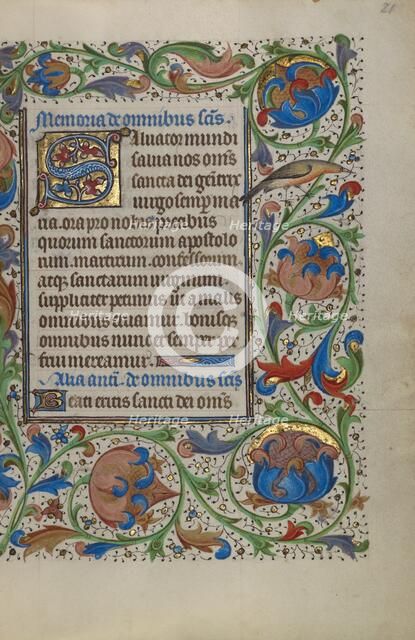 21
Memoria de omnibus sc̄is
Saluator mundi
salua nos om̄s
sancta dei genitrix
uirgo semper ma
ria. ora pro nobis precibus
quorum sanctorum apostolo
rum. martirum. confessorum
atq; sanctarum uirginum
suppliciter petimus ut a malis
omnibus eruamur bonisq;
omnibus nunc et semper per
frui mereamur.
Alia ant̄. de omnibus sc̄is
Beati eritis sancti dei om̄s
Heritage
Heritage
Heritage
Heritage
Heritage
Heritage
Heritage